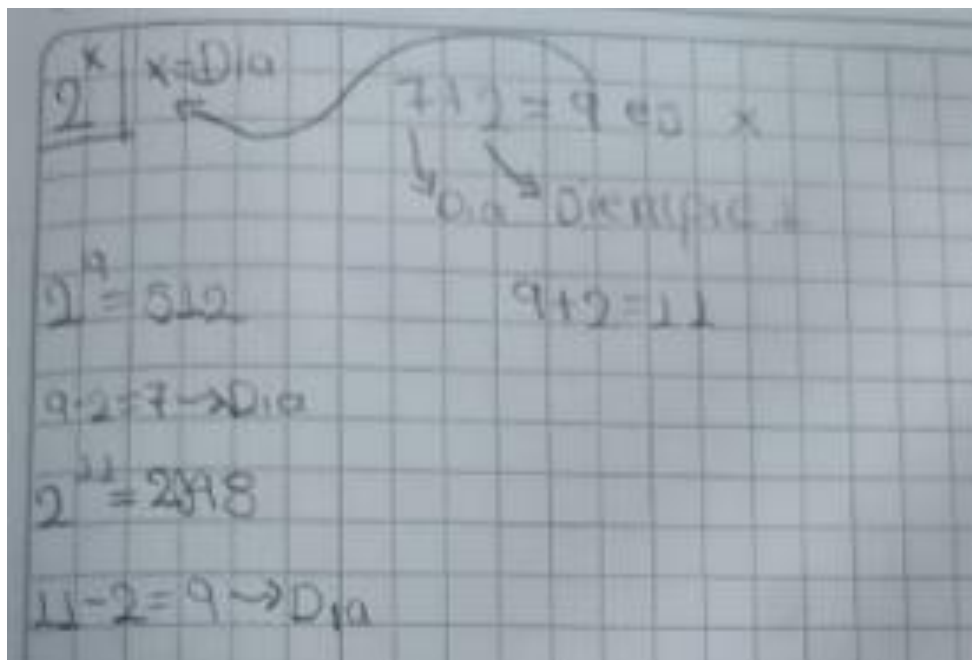 2^x x=Dia
7+2=9 es x
Dia Siempre +
2^9=512
9+2=11
9-2=7→Dia
2^11=2048
11-2=9→Dia